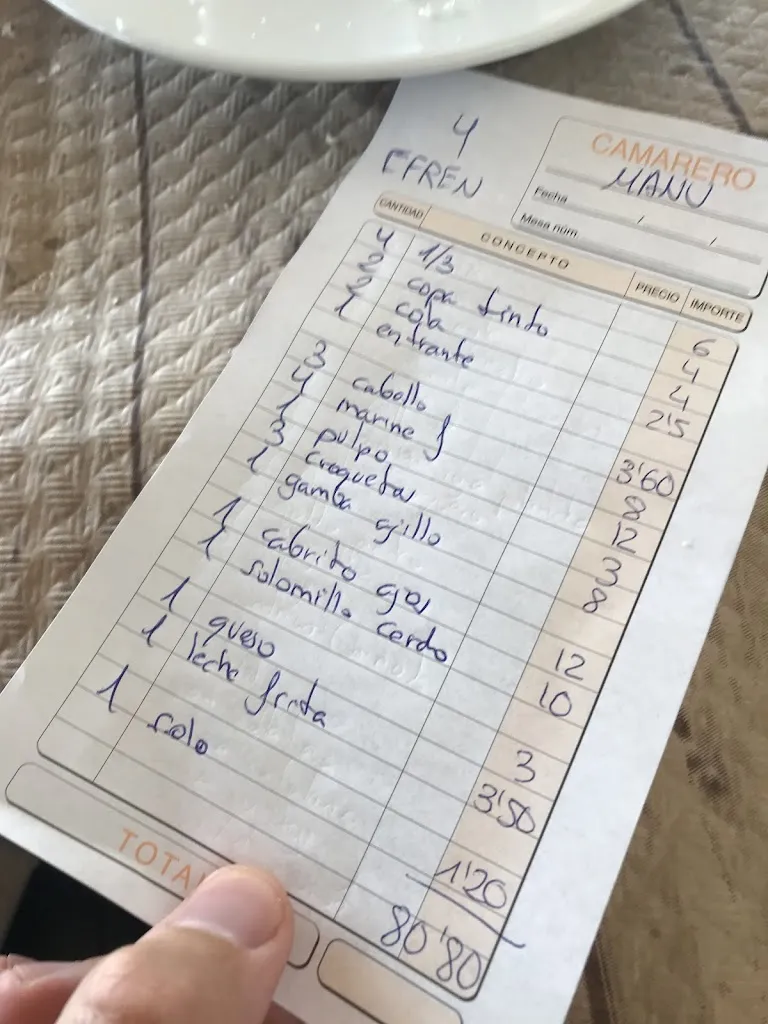 4
EFREN
CAMARERO
MANU
Fecha / /
Mesa núm.
CANTIDAD CONCEPTO PRECIO IMPORTE
4 1/3 6
2 copa tinto 4
2 cola 4
1 entrante 2'5
3 cabello 3'60
4 marine f 8
1 pulpo 12
3 croqueta 3
1 gamba ajillo 8
1 cabrito 12
1 solomillo cerdo 10
1 queso 3
1 leche frita 3'50
1 solo 1'20
80'80
TOTA